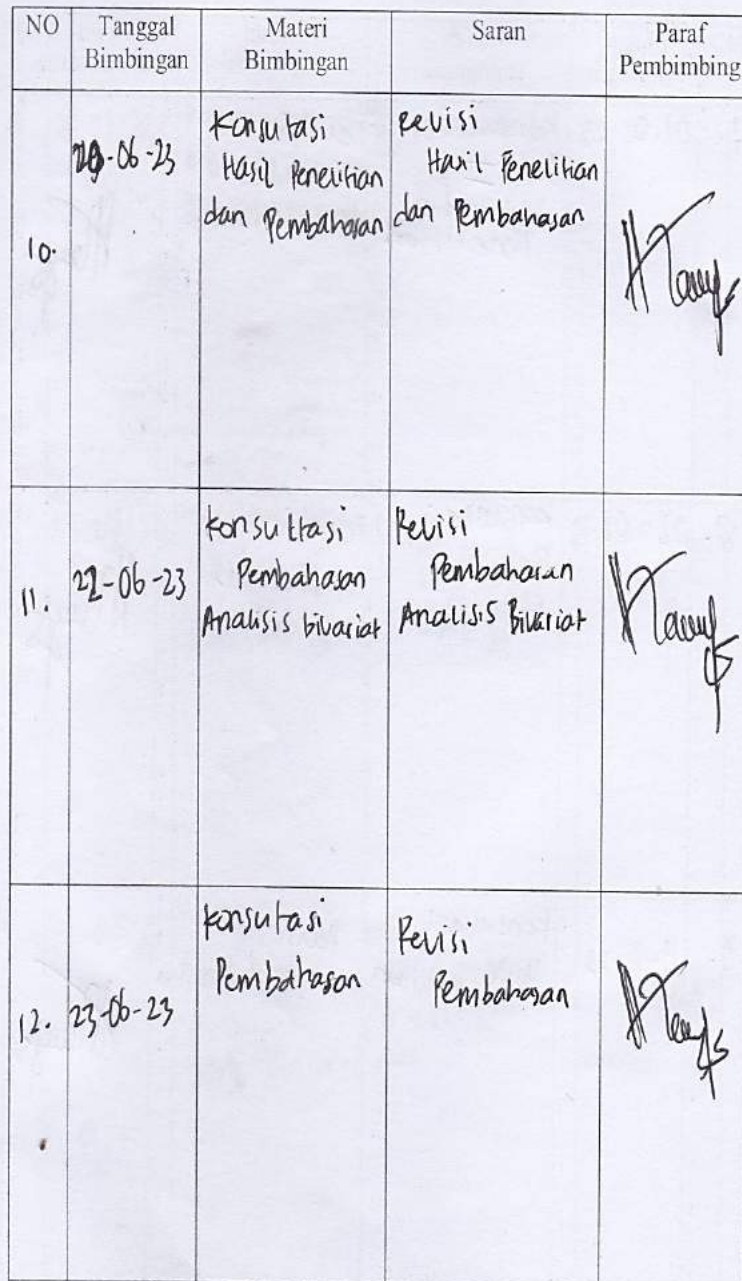 NO Tanggal Bimbingan Materi Bimbingan Saran Paraf Pembimbing
10. -06-23 Konsutasi Hasil Penelitian dan Pembahasan Revisi Hasil Penelitian dan Pembahasan
11. 22-06-23 Konsultasi Pembahasan Analisis bivariat Revisi Pembahasan Analisis Bivariat
12. 23-06-23 Konsutasi Pembahasan Revisi Pembahasan